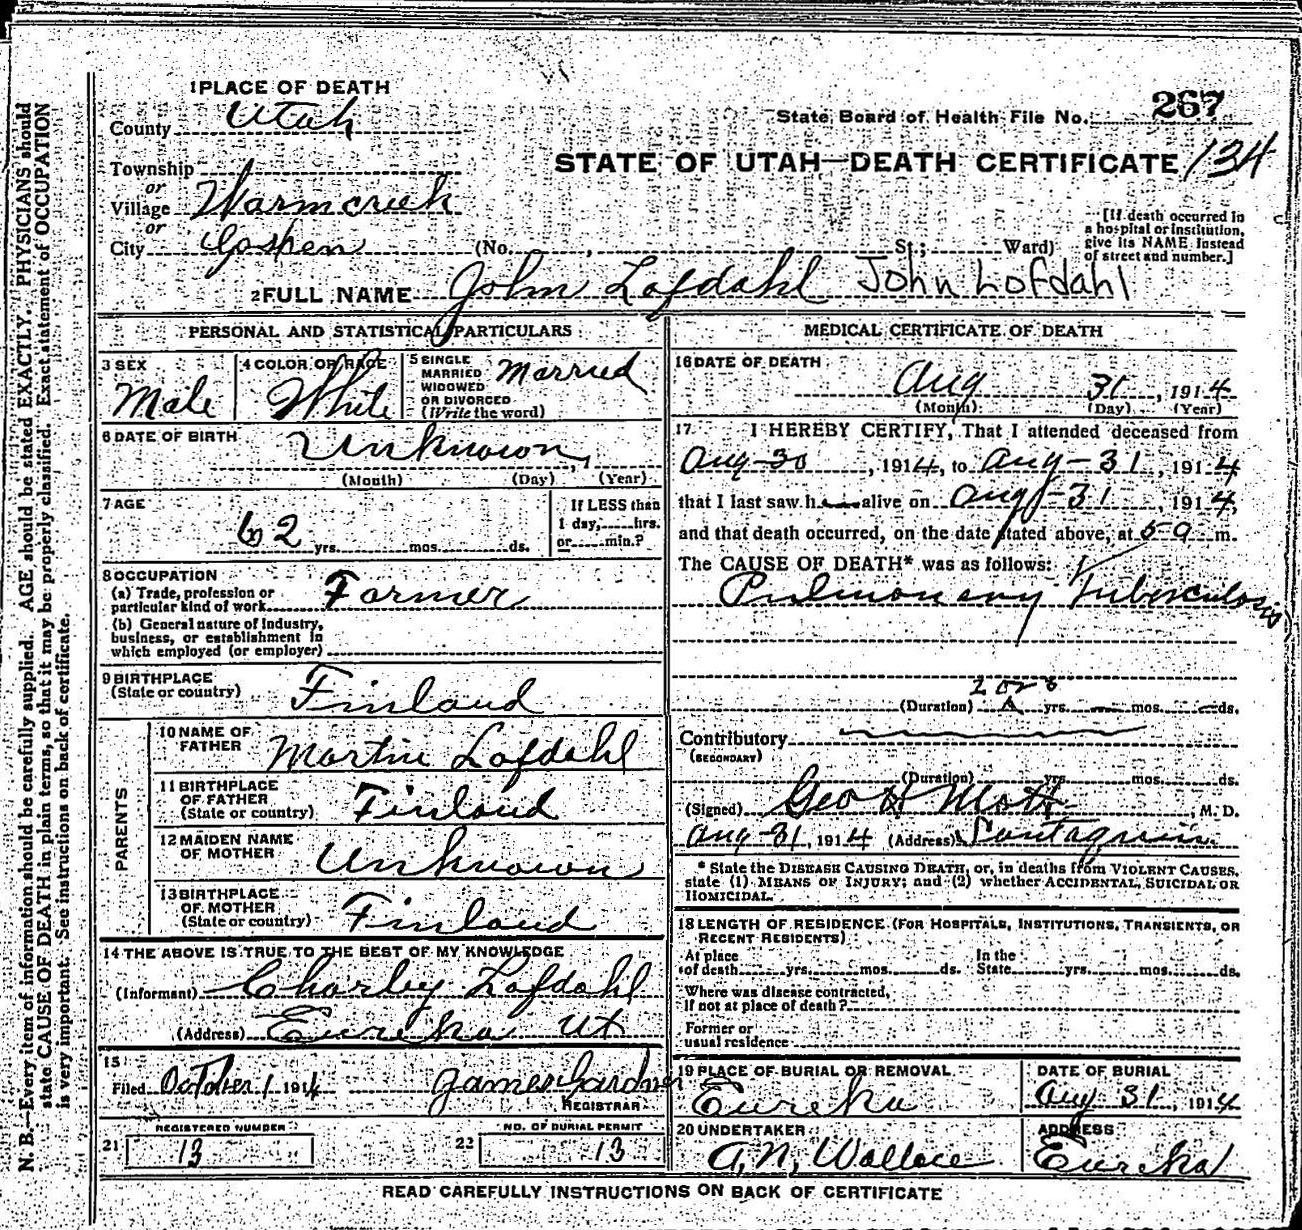 1 PLACE OF DEATH
County Utah
State Board of Health File No. 267
Township
STATE OF UTAH—DEATH CERTIFICATE 134
or
Village Warmcreek
or
City Goshen (No. , St.; Ward)
[If death occurred in
a hospital or institution,
give its NAME instead
of street and number.]
2 FULL NAME John Lofdahl John Lofdahl
PERSONAL AND STATISTICAL PARTICULARS
3 SEX
Male
4 COLOR OR RACE
White
5 SINGLE
MARRIED
WIDOWED
OR DIVORCED
(Write the word)
Married
6 DATE OF BIRTH
Unknown, 1
(Month) (Day) (Year)
7 AGE
62 yrs. mos. ds.
If LESS than
1 day, hrs.
or min.?
8 OCCUPATION
(a) Trade, profession or
particular kind of work Farmer
(b) General nature of Industry,
business, or establishment in
which employed (or employer)
9 BIRTHPLACE
(State or country) Finland
PARENTS
10 NAME OF
FATHER Martin Lofdahl
11 BIRTHPLACE
OF FATHER
(State or country) Finland
12 MAIDEN NAME
OF MOTHER Unknown
13 BIRTHPLACE
OF MOTHER
(State or country) Finland
14 THE ABOVE IS TRUE TO THE BEST OF MY KNOWLEDGE
(Informant) Charley Lofdahl
(Address) Eureka Ut
15
Filed October 1 1914 James Gardner
REGISTRAR
REGISTERED NUMBER
21 13
NO. OF BURIAL PERMIT
22 13
MEDICAL CERTIFICATE OF DEATH
16 DATE OF DEATH
Aug 31, 1914
(Month) (Day) (Year)
17 I HEREBY CERTIFY, That I attended deceased from
Aug-30, 1914, to Aug-31, 1914
that I last saw h alive on Aug-31, 1914,
and that death occurred, on the date stated above, at 5 a m.
The CAUSE OF DEATH* was as follows:
Pulmonary Tuberculosis
2 or 3
(Duration) yrs. mos. ds.
Contributory
(SECONDARY)
(Duration) yrs. mos. ds.
(Signed) Geo H Mott, M. D.
Aug-31, 1914 (Address) Santaquin
* State the DISEASE CAUSING DEATH, or, in deaths from VIOLENT CAUSES,
state (1) MEANS OF INJURY; and (2) whether ACCIDENTAL, SUICIDAL OR
HOMICIDAL.
18 LENGTH OF RESIDENCE (FOR HOSPITALS, INSTITUTIONS, TRANSIENTS, OR
RECENT RESIDENTS)
At place In the
of death yrs. mos. ds. State yrs. mos. ds.
Where was disease contracted,
if not at place of death?
Former or
usual residence
19 PLACE OF BURIAL OR REMOVAL
Eureka
DATE OF BURIAL
Aug 31, 1914
20 UNDERTAKER
A. N. Wallace
ADDRESS
Eureka
READ CAREFULLY INSTRUCTIONS ON BACK OF CERTIFICATE
N. B.—Every item of information should be carefully supplied. AGE should be stated EXACTLY. PHYSICIANS should
state CAUSE OF DEATH in plain terms, so that it may be properly classified. Exact statement of OCCUPATION
is very important. See instructions on back of certificate.